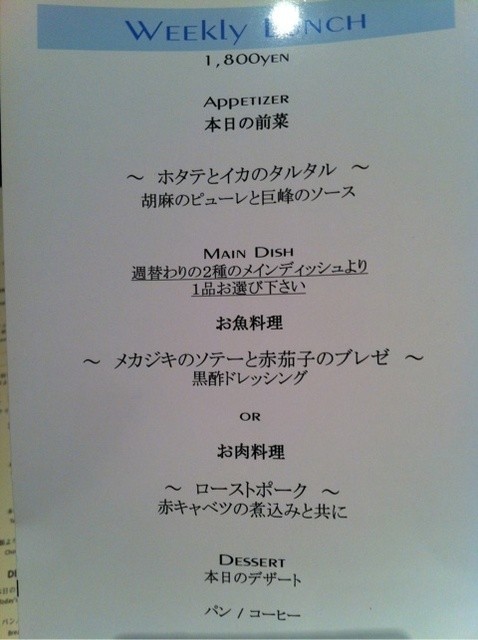 WEEKLY LUNCH
1,800YEN
APPETIZER
本日の前菜
～ ホタテとイカのタルタル ～
胡麻のピューレと巨峰のソース
MAIN DISH
週替わりの2種のメインディッシュより
1品お選び下さい
お魚料理
～ メカジキのソテーと赤茄子のブレゼ ～
黒酢ドレッシング
OR
お肉料理
～ ローストポーク ～
赤キャベツの煮込みと共に
DESSERT
本日のデザート
パン / コーヒー